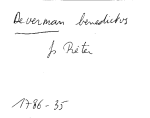 Deverman benedictus
fs Pieter
1786-35